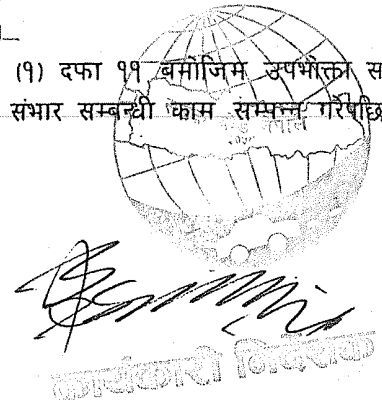 (१) दफा ११ बमोजिम उपभोक्ता स
संभार सम्बन्धी काम सम्पन्न गरेपछि
नेपाल
कार्यकारी निर्देशक